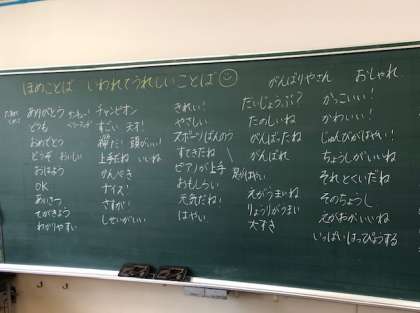 ほめことば いわれてうれしいことば
がんばりやさん おしゃれ
ありがとう
どうも
おめでとう
どうぞ おいしい
おはよう
OK
あいさつ
てがきよう
わかりやすい
チャンピオン
すごい 天才!
頭がいい!
上手だね いいね
かんぺき
ナイス!
さすが!
しせいがいい
きれい!
やさしい
スポーツばんのう
すてきだね
ピアノが上手
おもしろい
元気だね!
はやい
だいじょうぶ?
たのしいね
がんばったね
がんばれ
足がはやい
えがうまいね
りょうりがうまい
大すき
かっこいい!
かわいい!
じゅんびがはやい!
ちょうしがいいね
それとくいだね
そのちょうし
えがおがいいね
いっぱいはっぴょうする